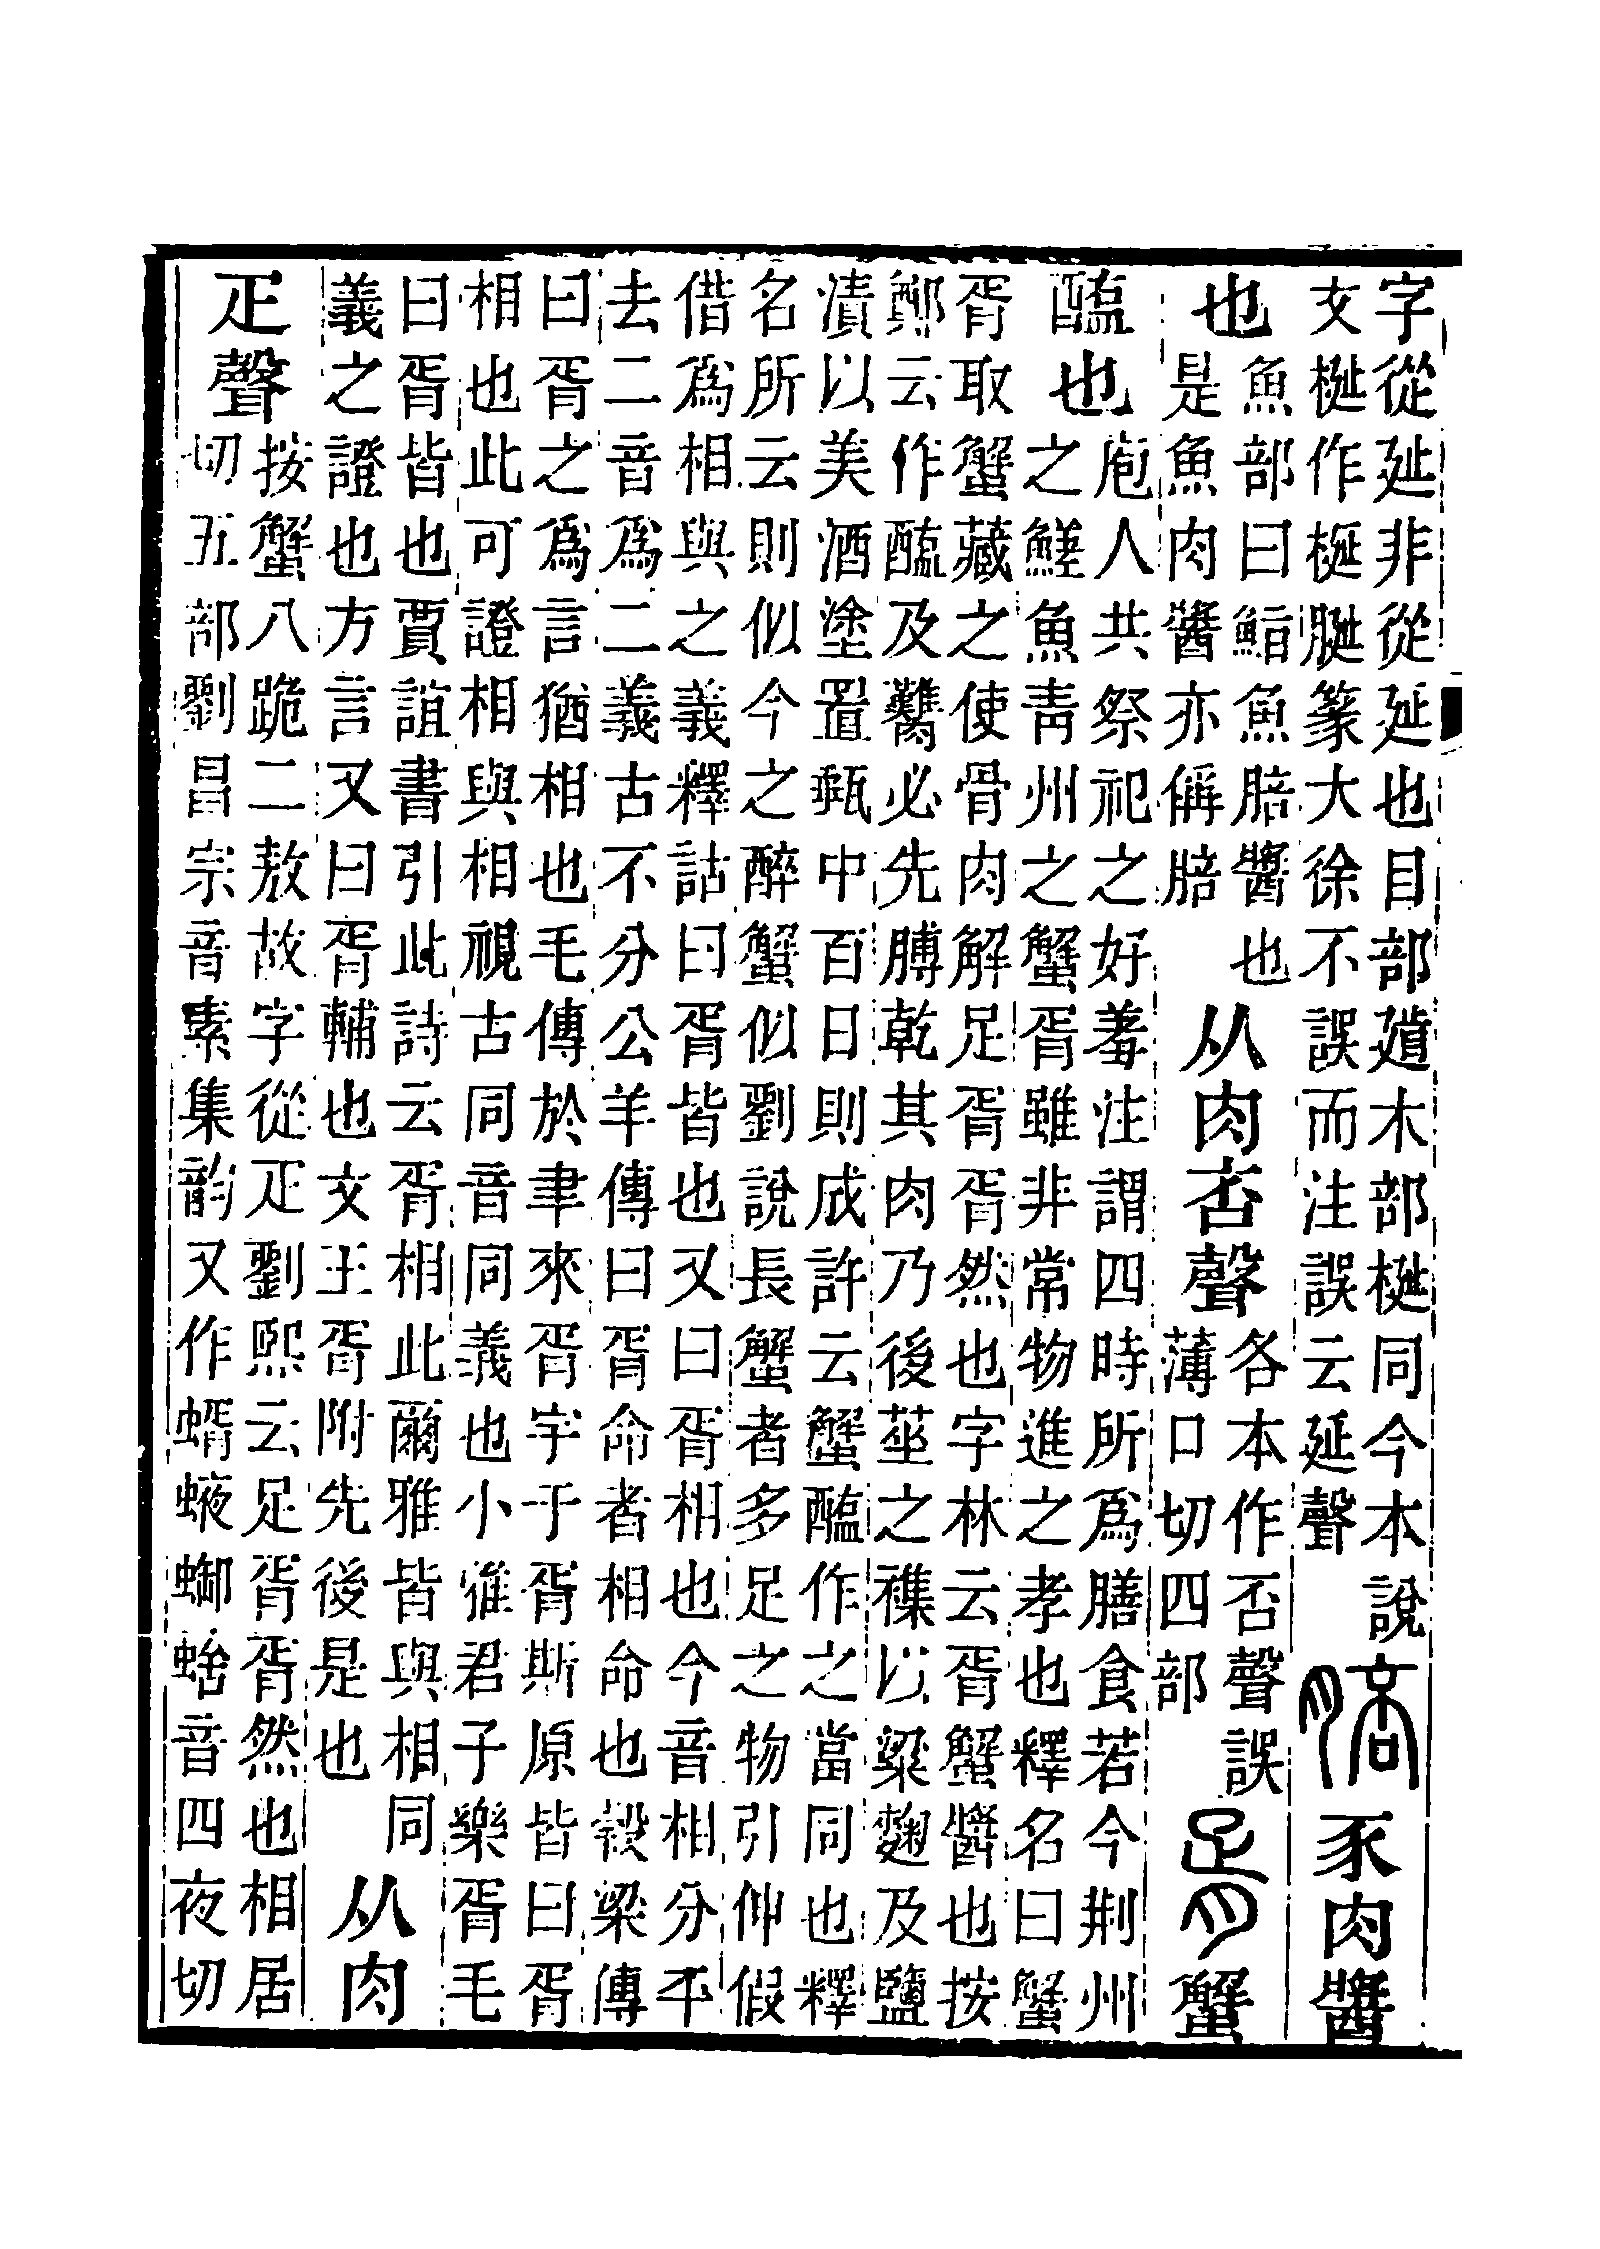 字從㢟非從延也目部𨔣木部梴同今本說
文梴作梴脡篆大徐不誤而注誤云延聲
䏽豕肉醬
也
魚部曰鮨魚䏽醬也
是魚肉醬亦偁䏽
从肉否聲
各本作否聲誤
薄口切四部
胥蟹
醢也
庖人共祭祀之好羞注謂四時所爲膳食若今荆州
之䱹魚青州之蟹胥雖非常物進之孝也釋名曰蟹
胥取蟹藏之使骨肉解足胥胥然也字林云胥蟹醬也按
鄭云作醢及臡必先膊乾其肉乃後莝之襍以粱麴及鹽
漬以美酒塗置甀中百日則成許云蟹醢作之當同也釋
名所云則似今之醉蟹似劉說長蟹者多足之物引伸假
借爲相與之義釋詁曰胥皆也又曰胥相也今音相分平
去二音爲二義古不分公羊傳曰胥命者相命也穀梁傳
曰胥之爲言猶相也毛傳於聿來胥宇于胥斯原皆曰胥
相也此可證相與相視古同音同義也小雅君子樂胥毛
曰胥皆也賈誼書引此詩云胥相此爾雅皆與相同
義之證也方言又曰胥輔也文王胥附先後是也
从肉
疋聲
按蟹八跪二敖故字從疋劉熙云足胥胥然也相居
切五部劉昌宗音素集韵又作蝑䖳蝍蛒音四夜切